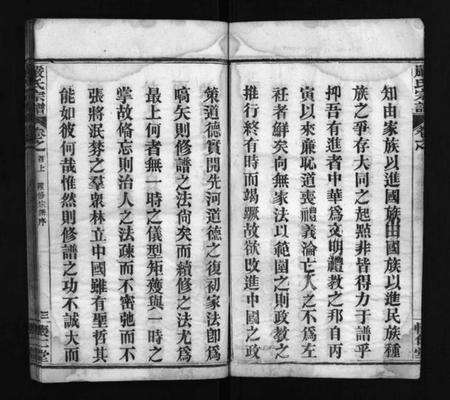 知由家族以進國族由國族以進民族種
族之爭存大同之起點非皆得力于譜乎
抑吾有進者中華爲文明禮教之邦自丙
寅以來廉恥道喪禮義淪亡人之不爲左
社者鮮矣向無家法以範圍之則政教之
推行終有時而竭蹶故欲改進中國之政
策道德實開先河道德之復初家法卽爲
嚆矢則修譜之法尚矣而續修之法尤爲
最上何者無一時之儀型矩矱與一時之
掌故脩忘則治人之法疎而不密弛而不
張將泯棼之羣衆林立中國雖有聖哲其
能如彼何哉惟然則修譜之功不誠大而
嚴氏宗譜
卷之首上
三